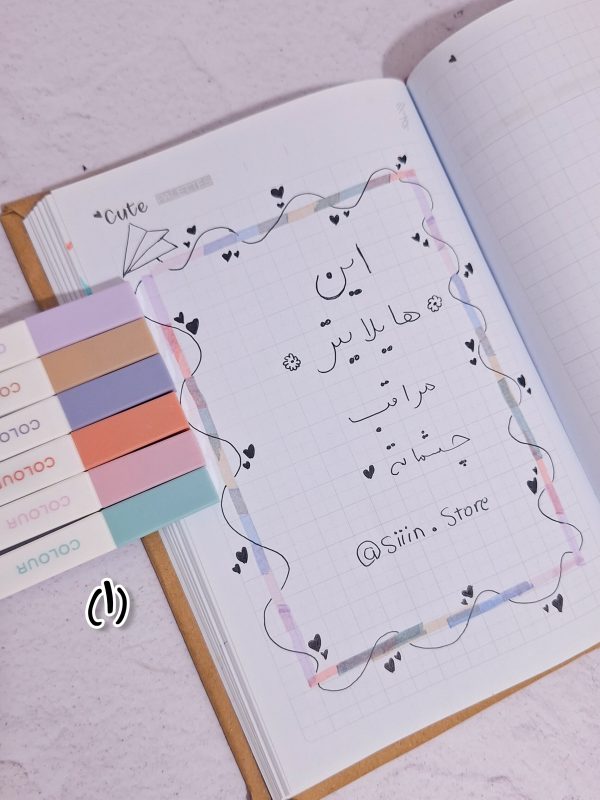 Cute
این
هایلایتر
مراقب
چشماته
@siiin.store
COLOUR
COLOUR
COLOUR
COLOUR
(۱)